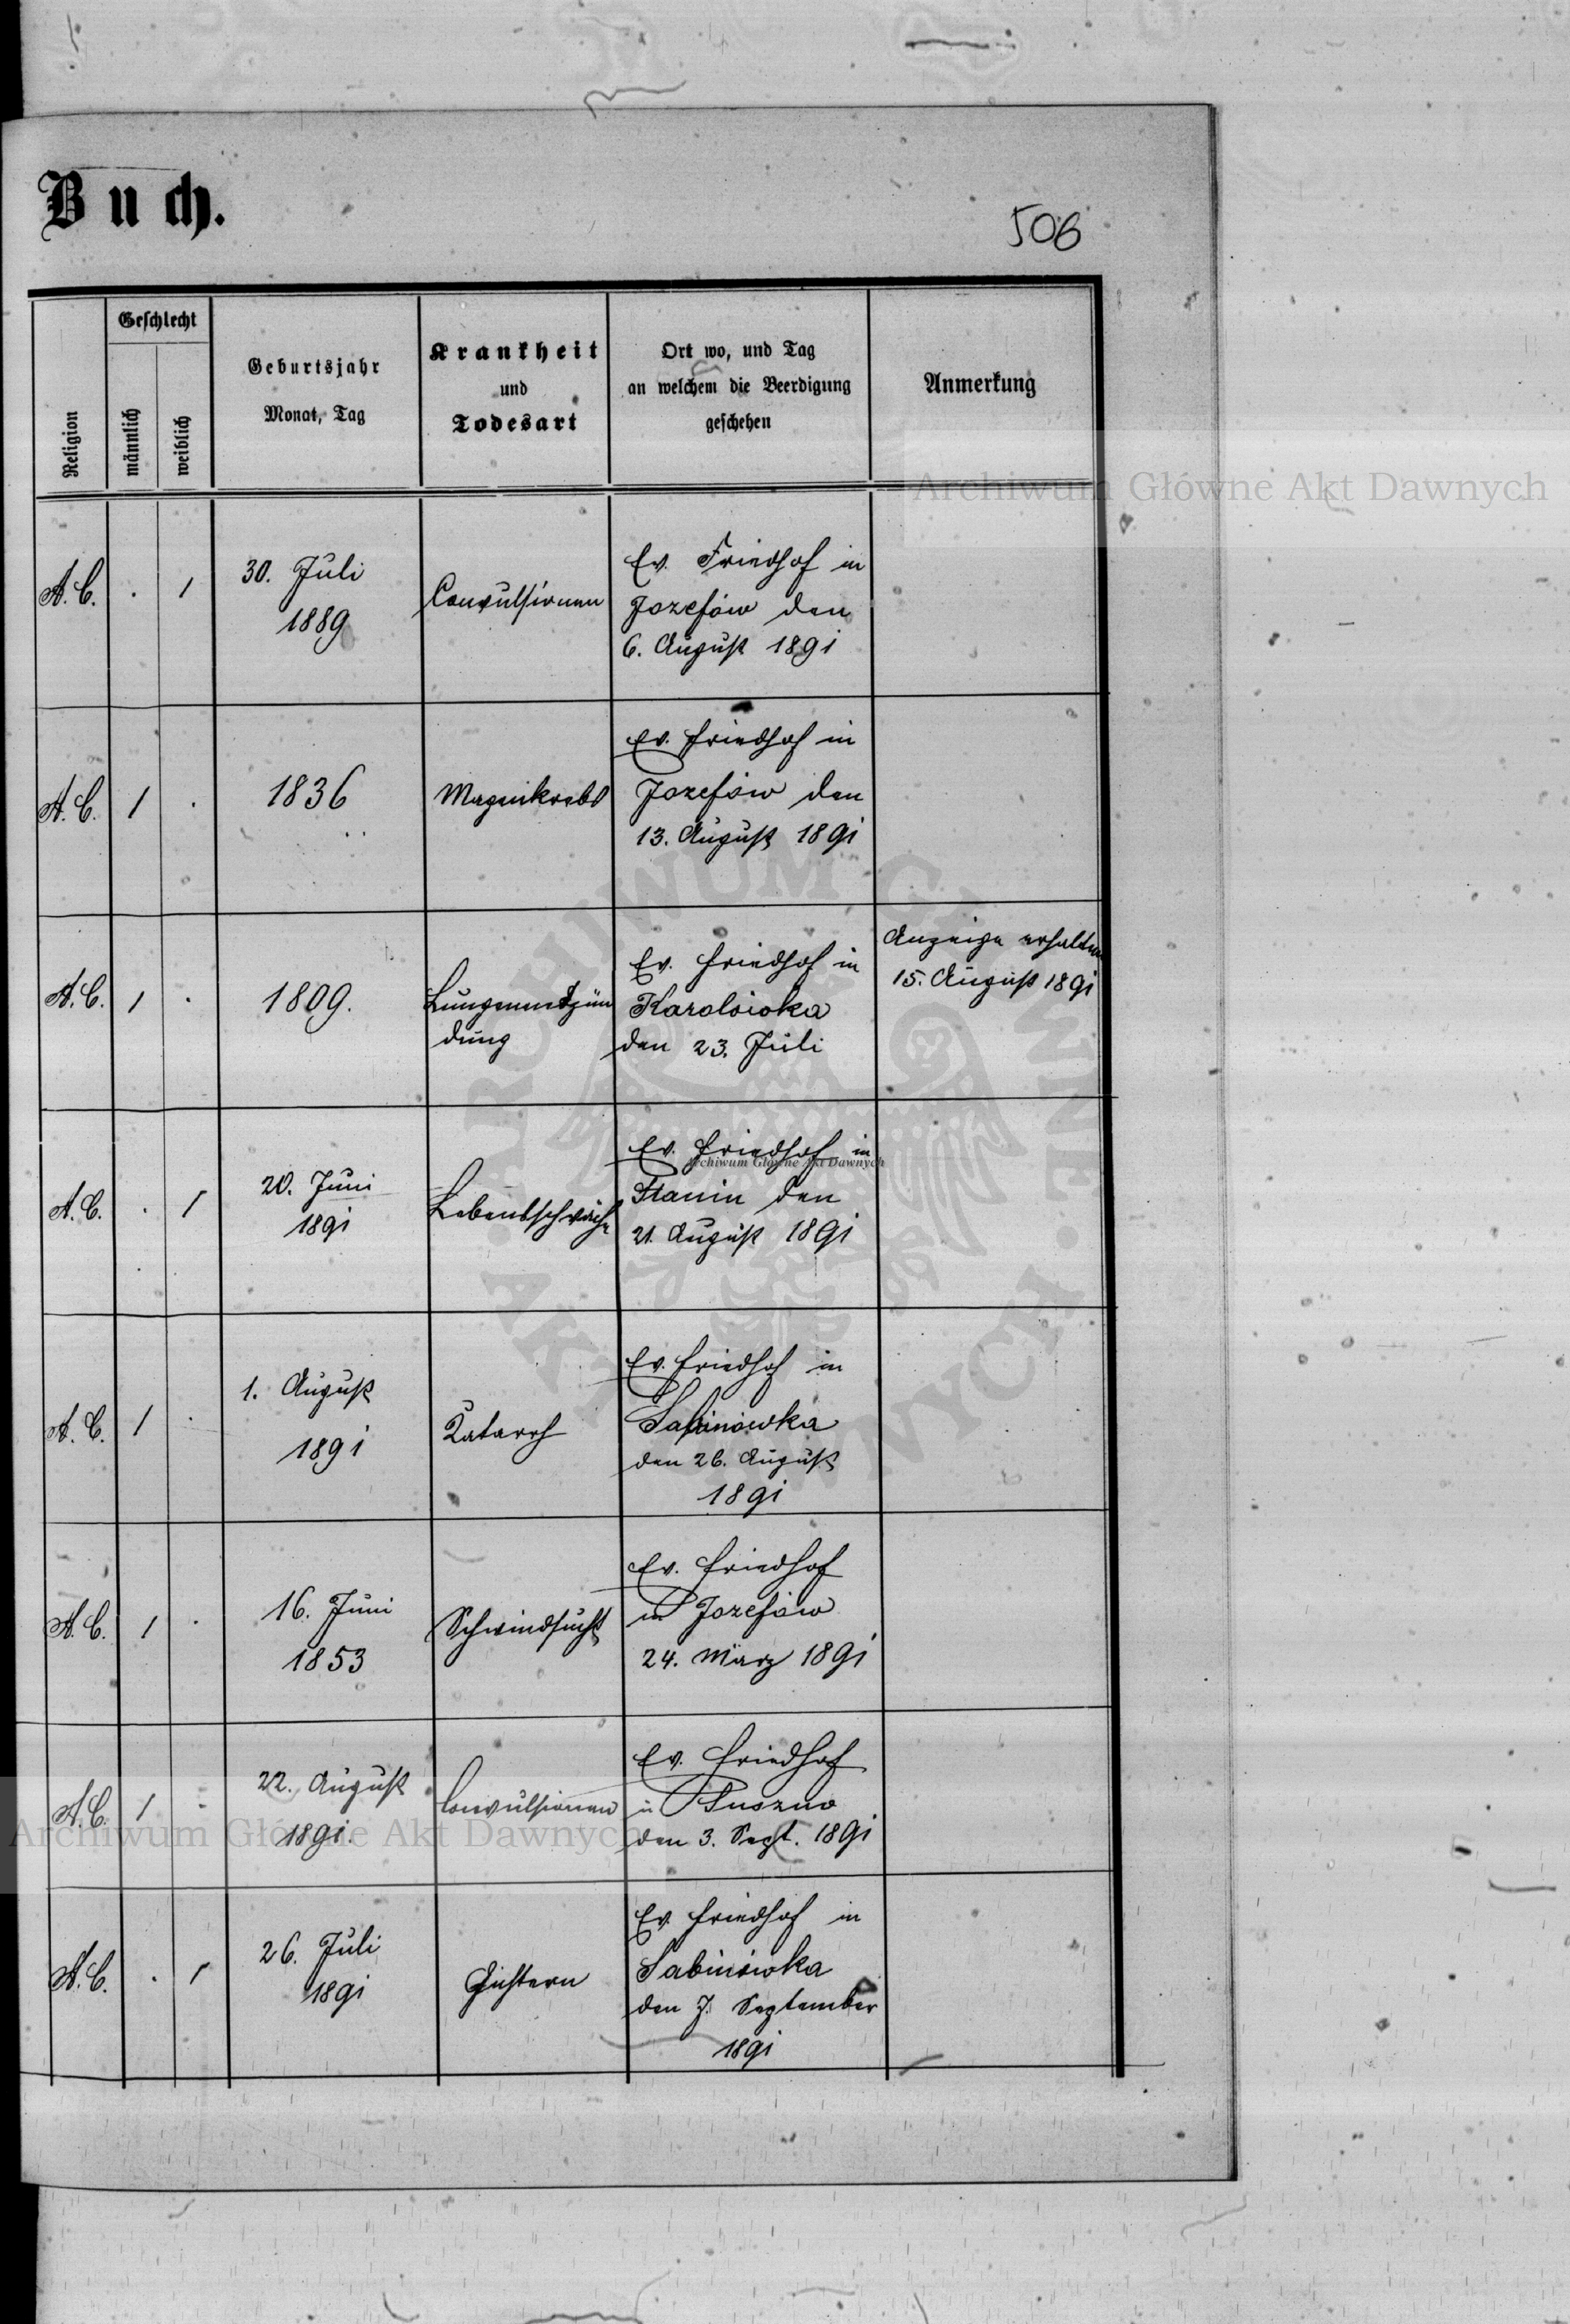 Buch.
506
Religion
Geschlecht
männlich
weiblich
Geburtsjahr
Monat, Tag
Krankheit
und
Todesart
Ort wo, und Tag
an welchem die Beerdigung
geschehen
Anmerkung
Archiwum Główne Akt Dawnych
A. C. . 1
30. Juli
1889
Convulsionen
Ev. Friedhof in
Jozefów den
6. August 1891
A. C. 1 .
1836
Magenkrebs
Ev. Friedhof in
Jozefów den
13. August 1891
A. C. 1 .
1809.
Lungenentzün
dung
Ev. Friedhof in
Karolówka
den 23. Juli
Anzeige erhalten
15. August 1891
A. C. . 1
20. Juni
1891
Lebensschwäche
Ev. Friedhof in
Archiwum Główne Akt Dawnych
Stanin den
21. August 1891
A. C. 1 .
1. August
1891
Katarrh
Ev. Friedhof in
Sabinówka
den 26. August
1891
A. C. 1 .
16. Juni
1853
Schwindsucht
Ev. Friedhof
in Jozefów
24. März 1891
A. C. 1 .
22. August
1891.
Convulsionen
Ev. Friedhof
in
den 3. Sept. 1891
Archiwum Główne Akt Dawnych
A. C. . 1
26. Juli
1891
Gichtern
Ev. Friedhof in
Sabinówka
den 7. September
1891
ARCHIWUM GŁÓWNE · AKT DAWNYCH ·